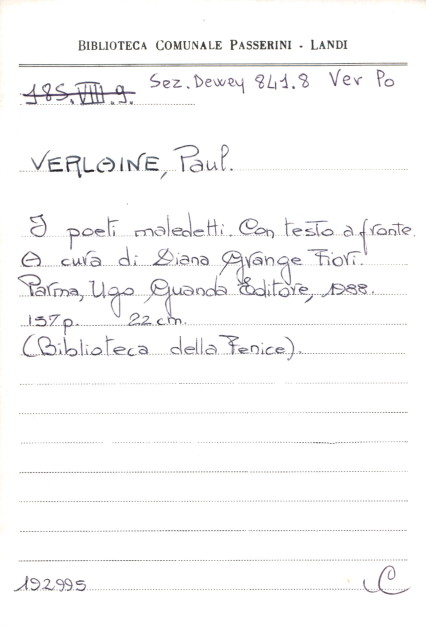 BIBLIOTECA COMUNALE PASSERINI - LANDI
185.VIII.9. Sez. Dewey 841.8 Ver Po
VERLAINE, Paul.
I poeti maledetti. Con testo a fronte.
A cura di Diana Grange Fiori.
Parma, Ugo Guanda Editore, 1988.
157 p. 22 cm.
(Biblioteca della Fenice).
192995 C